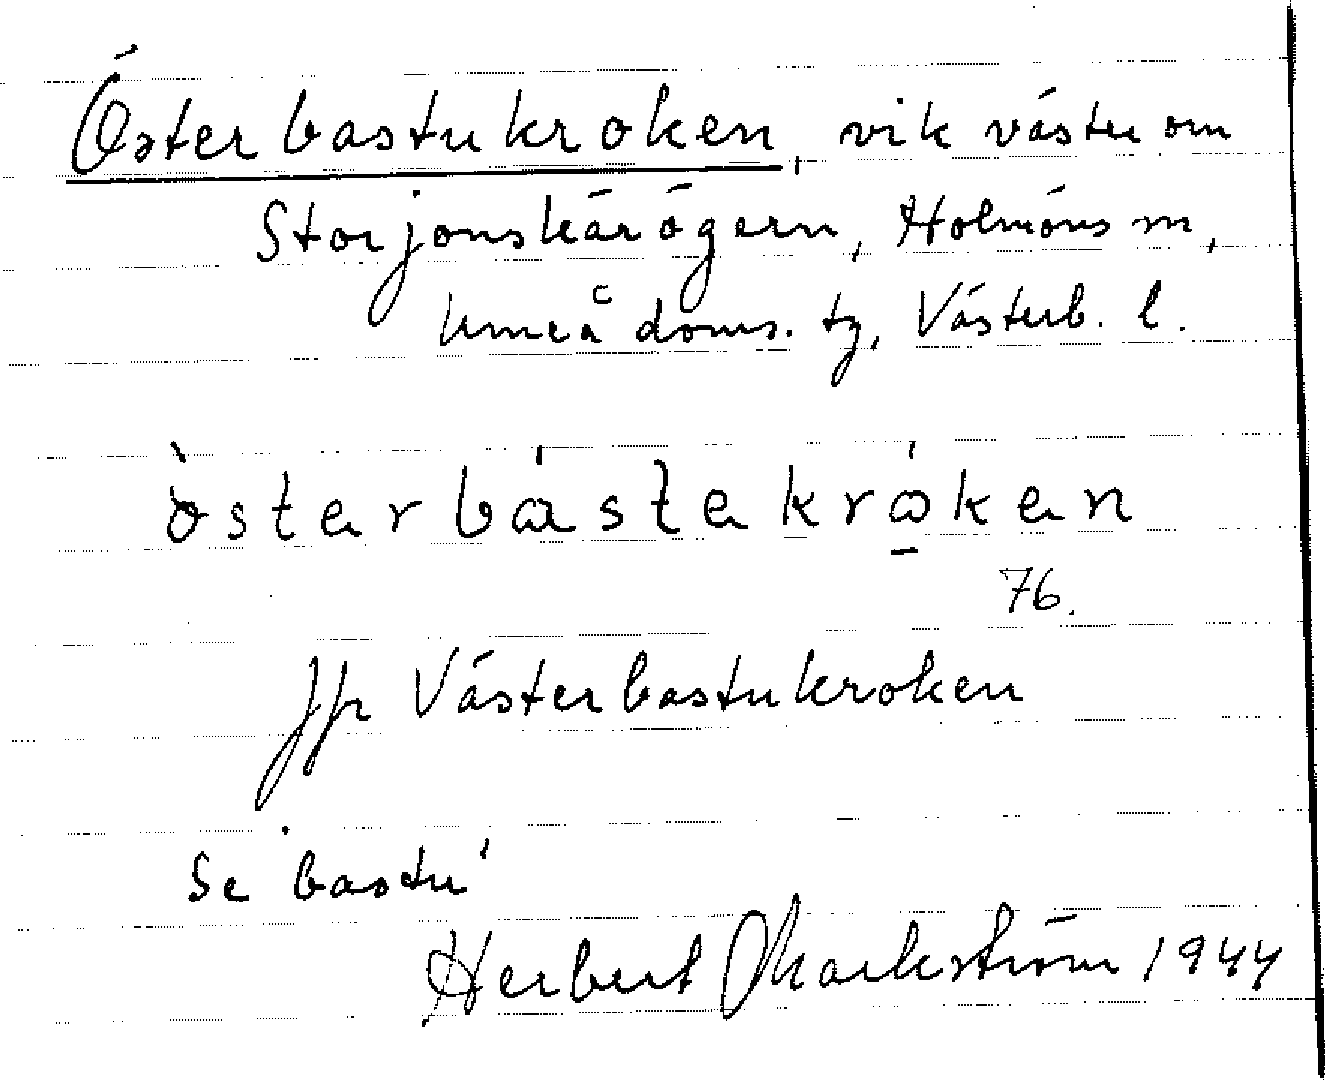 Österbastukroken, vik väster om
Storjonskärögern, Holmöns sn,
Umeå doms. tg, Västerb. l.
òsterbástakrókan
76.
Jfr Västerbastukroken
Se bastu'
Herbert Markström 1944